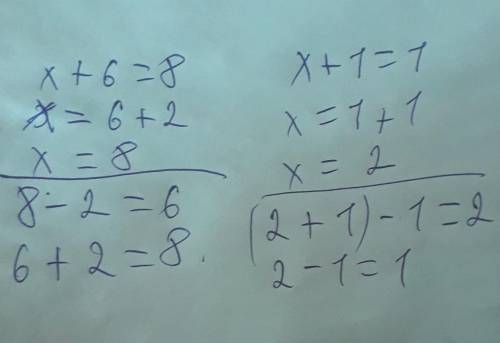 x + 6 = 8
x = 6 + 2
x = 8
8 - 2 = 6
6 + 2 = 8.
x + 1 = 1
x = 1 + 1
x = 2
(2 + 1) - 1 = 2
2 - 1 = 1